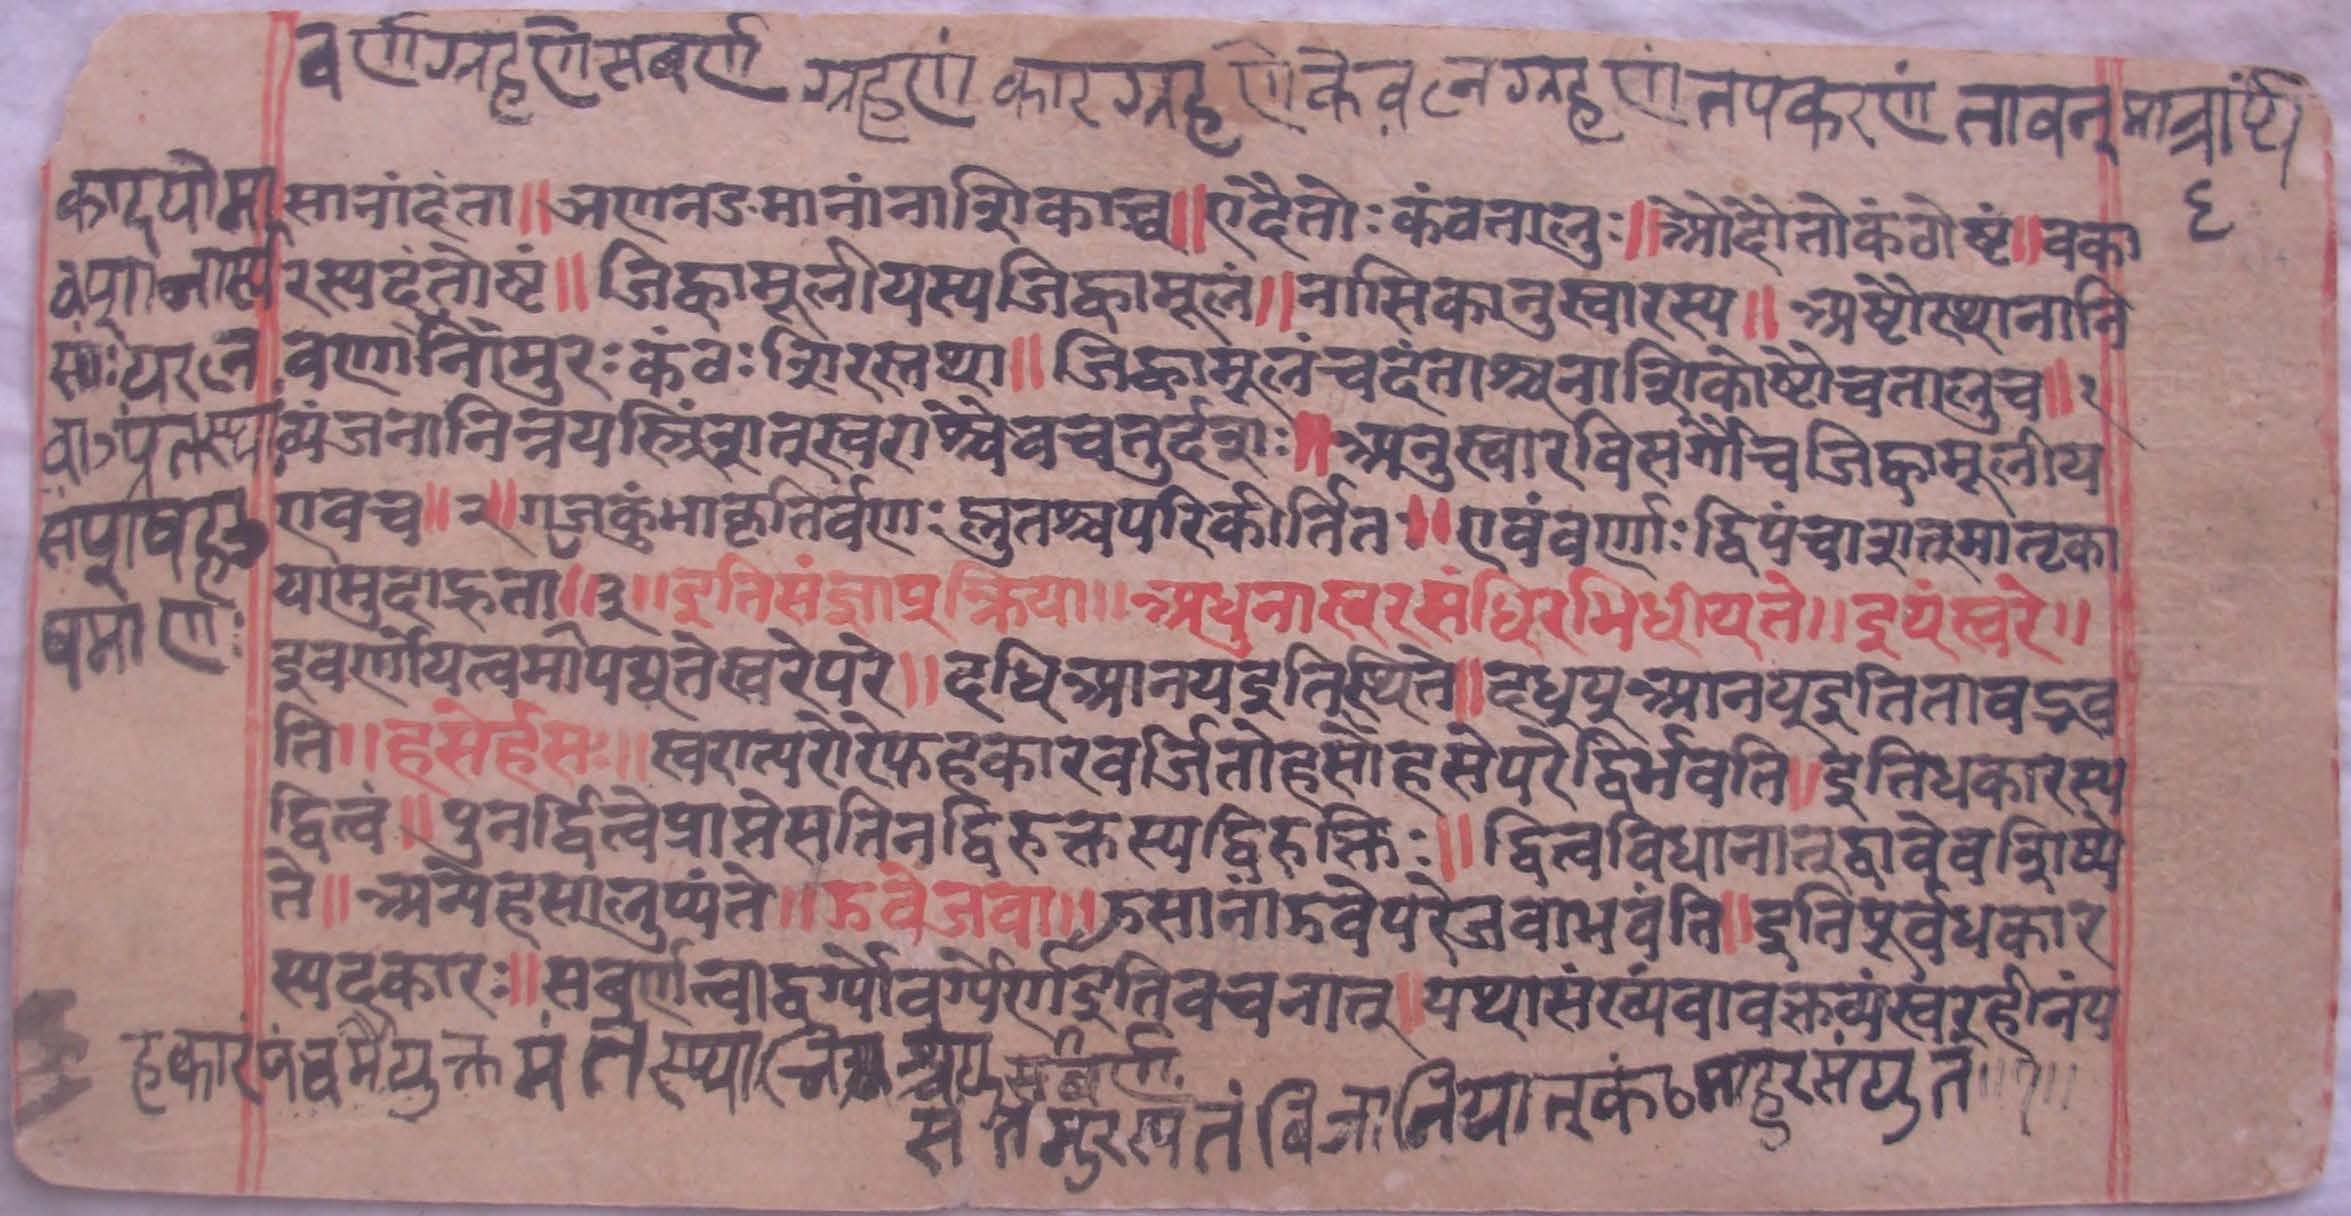 वर्णग्रहणेसवर्णग्रहणं कारग्रहणेकेवलनग्रहणं तपकरणं तावन्मात्रार्थं
६
कादयोमा
वपूर्णाभास्प
साःयरल
वाऽप्रंतस्था
संपूशषहउ
षमाणः
सानांदंता॥ञणनङमानांनाशिकाच्च॥एदैतोःकंवतालुः॥ओदौतोकंठोष्टं॥वका
रस्यदंतोष्टं॥जिह्वामूलीयस्यजिह्वामूलं॥नासिकानुस्वारस्य॥अष्टौस्थानानि
वर्णानांमुरःकंठःशिरस्तथा॥जिह्वामूलंचदंताश्चनाशिकोष्टौचतालुच॥१
व्यंजनानित्रयस्त्रिंशत्स्वराश्चैवचतुर्दशः॥अनुस्वारविसर्गौचजिह्वामूलीय
एवच॥२॥गजकुंभाकृतिर्वर्णःप्लुतश्चपरिकीर्तितः॥एवंवर्णाःद्विपंचाशत्मातृका
यामुदाहृता॥३॥इतिसंज्ञाप्रक्रिया॥अधुनास्वरसंधिरभिधीयते॥इयंस्वरे॥
इवर्णोयत्वमापद्यतेस्वरेपरे॥दधिआनयइतिस्थिते॥दध्य्आनयइतितावद्भव
ति॥हसेर्हसः॥स्वरात्परोरेफहकारवर्जितोहसोहसेपरेद्विर्भवति॥इतिधकारस्य
द्वित्वं॥पुनर्द्वित्वेप्राप्तेसतिनद्विरुक्तस्यद्विरुक्तिः॥द्वित्वविधानात्द्वावेवशिष्य
ते॥अन्येहसालुप्यंते॥झवेजवा॥झसानांझवेपरेजवाभवंति॥इतिपूर्वधकार
स्यदकारः॥सवर्णत्वाद्वर्ग्योवर्ग्येर्णइतिवचनात्॥यथासंख्यंवावक्तव्यंस्वरहीनंप
हकारंपंचमैर्युक्तमंतस्थाभिश्च संयुतं
सतमुरस्यंतंविजानियात्कंठ्यमाहुरसंयुतं॥१॥